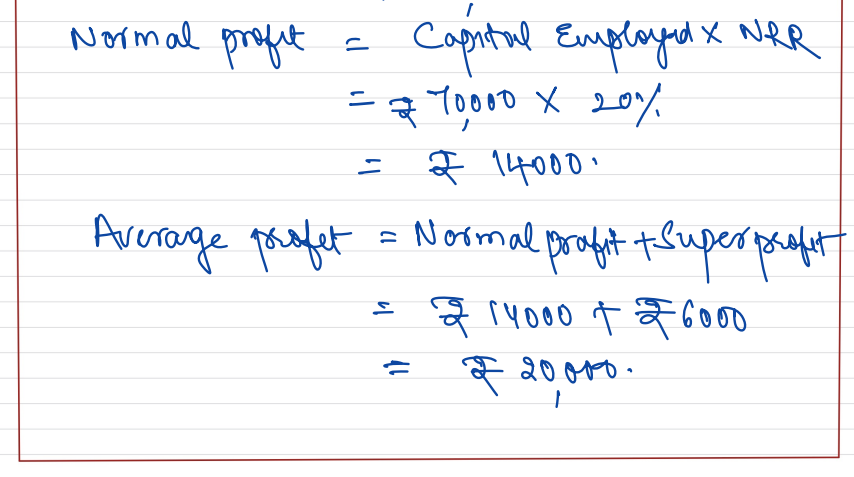 Normal profit = Capital Employed x NRR
= ₹ 70,000 x 20%
= ₹ 14000.
Average profit = Normal profit + Super profit
= ₹ 14000 + ₹ 6000
= ₹ 20,000.